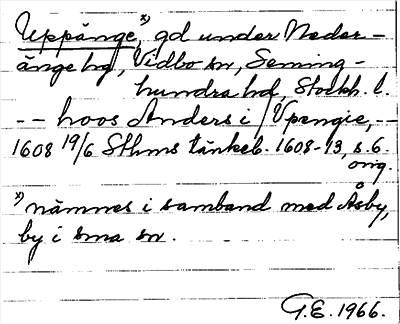 Uppänge,ˣ⁾ gd under Neder-
änge hg, Vidbo sn, Seming-
hundra hd, Stockh. l.
-- hoos Anders i / Vpengie, --
1608 19/6 Sthms tänkeb. 1608-13, s. 6.
orig.
ˣ⁾ nämnes i samband med Åsby,
by i sma sn.
G.E. 1966.